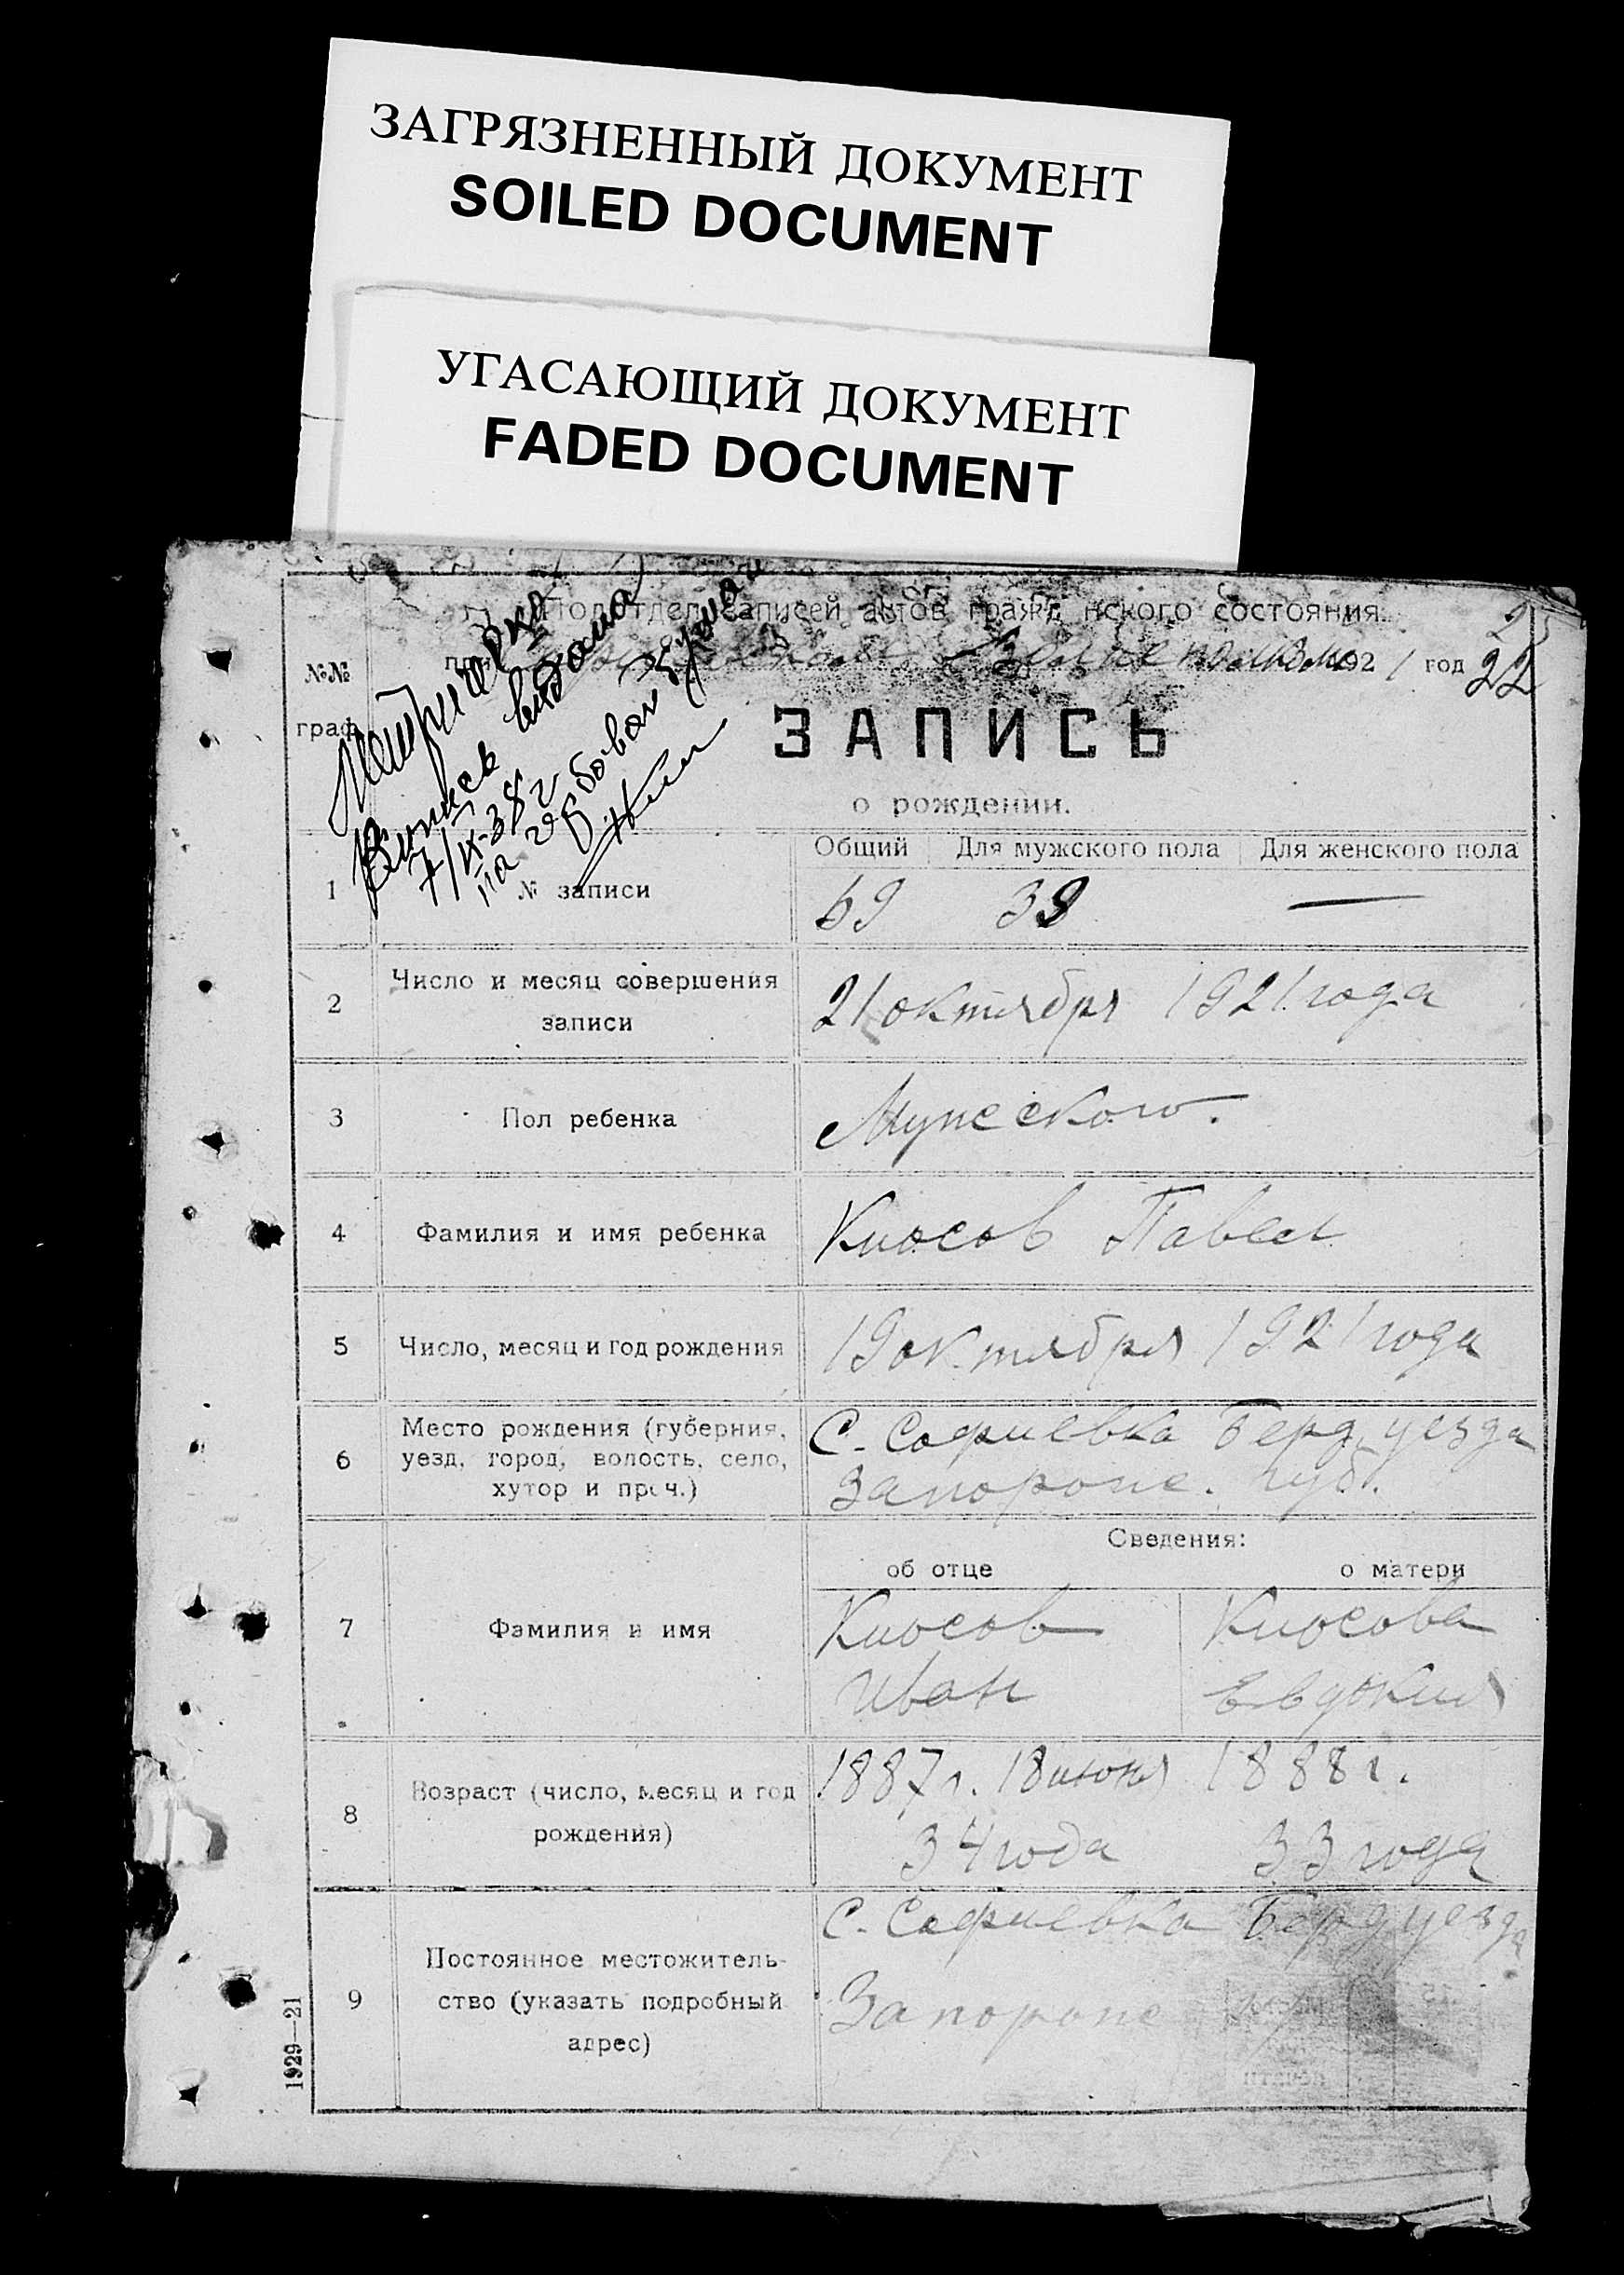 ЗАГРЯЗНЕННЫЙ ДОКУМЕНТ
SOILED DOCUMENT
УГАСАЮЩИЙ ДОКУМЕНТ
FADED DOCUMENT
Подотдел записей актов гражданского состояния.
25
при 192 1 год
22
№№
граф
Выпись выдана
7/IX-38 г
ЗАПИСЬ
о рождении.
Общий Для мужского пола Для женского пола
1 № записи 69 39 —
2 Число и месяц совершения
записи
21 октября 1921 года
3 Пол ребенка Мужского.
4 Фамилия и имя ребенка Кюсов Павел
5 Число, месяц и год рождения 19 октября 1921 года
6 Место рождения (губерния,
уезд, город, волость, село,
хутор и проч.)
С. Софиевка Берд. уезда
Запорож. губ.
Сведения:
об отце о матери
7 Фамилия и имя
Кюсов Кюсова
Иван Евдокия
8 Возраст (число, месяц и год
рождения)
1887 г. 18 июня 1888 г.
34 года 33 года
9 Постоянное местожитель-
ство (указать подробный
адрес)
С. Софиевка Берд уезда
Запорож
1929—21